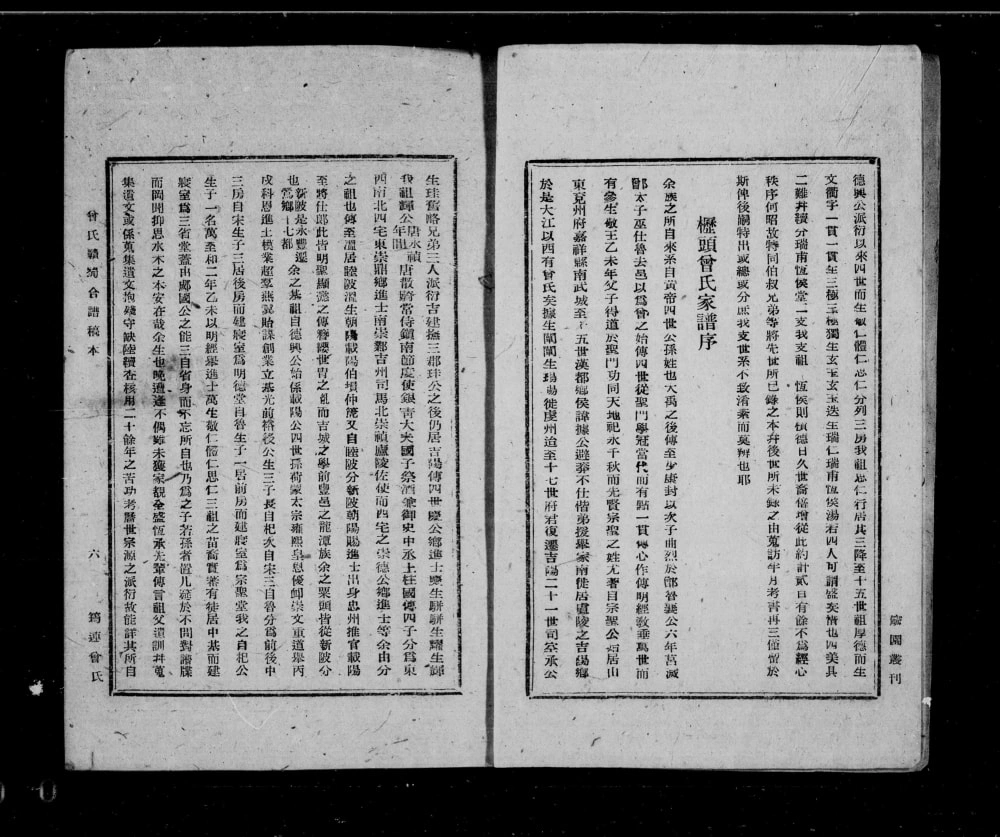 德興公派衍以來四世而生敬仁體仁忠仁分列三房我祖忠仁行居其三降至十五世祖厚德而生
文衢字一貫一貫生三極三極獨生玄玉玄玉迭生瑞仁瑞甫恆侯湯若四人可謂盛矣惜也四美具
二難幷續分瑞甫恆侯堂二支我支祖 恆侯則積德日久世裔倍增從此約計貳百有餘不爲經心
秩序何昭故特同伯叔兄弟等將先世所已錄之本幷後世所未錄之由蒐訪年月考書再三僅留於
斯俾後嗣特出或總或分庶我支世系不致淆紊而莫辨也耶
櫪頭曾氏家譜序
余族之所自來系自黃帝四世公孫姓也大禹之後傳至少康封以次子曲烈於鄫魯襄公六年莒滅
鄫太子巫仕魯去邑以爲曾之始傳四世從聖門學冠當代而有點一貫傳心作傳明經敎垂萬世而
有參生敬王乙未年父子得道於聖門功同天地祀永千秋而先賢宗聖之姓尤著目宗聖公始居山
東兗州府嘉祥縣南武城至十五世漢都鄉侯諱據公避莽不仕偕弟援舉家南徙居廬陵之吉陽鄉
於是大江以西有曾氏矣據生闡闡生瑒瑒徙虔州迨至十七世府君復遷吉陽二十一世司空承公
寧園叢刊
生珪舊略兄弟三人派衍吉建撫三郡珪公之後仍居吉陽傳四世慶公鄉進士慶生駢駢生耀生輝
我祖輝公唐永禎年間 唐散將常侍鎭南節度使銀靑大夫國子祭酒兼御史中丞上柱國傳四子分爲東
西南北四宅東崇鼎鄉進士南崇鄴吉州司馬北崇禎廬陵佐使而西宅之崇德公鄉進士等余由分
之祖也傳至溫居睦陂溫生朝陽載陽伯塤仲篪又自睦陂分新陂朝陽賜進士出身忠州推官載陽
至將仕郎此皆明聖顯懿之傳簪纓世冑之裔而吉城之學前豐邑之龍潭族余之栗頭皆從新陂分
也新陂是永豐遷鶯鄉十七都 余之基祖自德興公始係載陽公四世孫荷蒙太宗雍熙皇恩優卹崇文重道舉丙
戌科恩進士模業超羣燕翼貽謀創業立基光前裕後公生三子長自杞次自宋三自魯分爲前後中
三房自宋生子三居後房而建寢室爲明德堂自魯生子一居前房而建寢室爲宗聖堂我之自杞公
生子一名萬至和二年乙未以明經舉進士萬生敬仁體仁忠仁三祖之苗裔實蕃有徒居中基而建
寢室爲三省堂蓋由郕國公之能三自省身而不忘所自也乃爲之子若孫者置几筵於不問對譜牒
而罔聞抑思水木之本安在哉余生也晚遭逢不偶雖未獲家覩全盛恆承先輩傳言祖父遺訓幷蒐
集遺文或係蒐集遺文抱殘守缺陸續査核用二十餘年之苦功考曆世宗源之派衍故能詳其所自
曾氏贛蜀合譜稿本
六
筠連曾氏